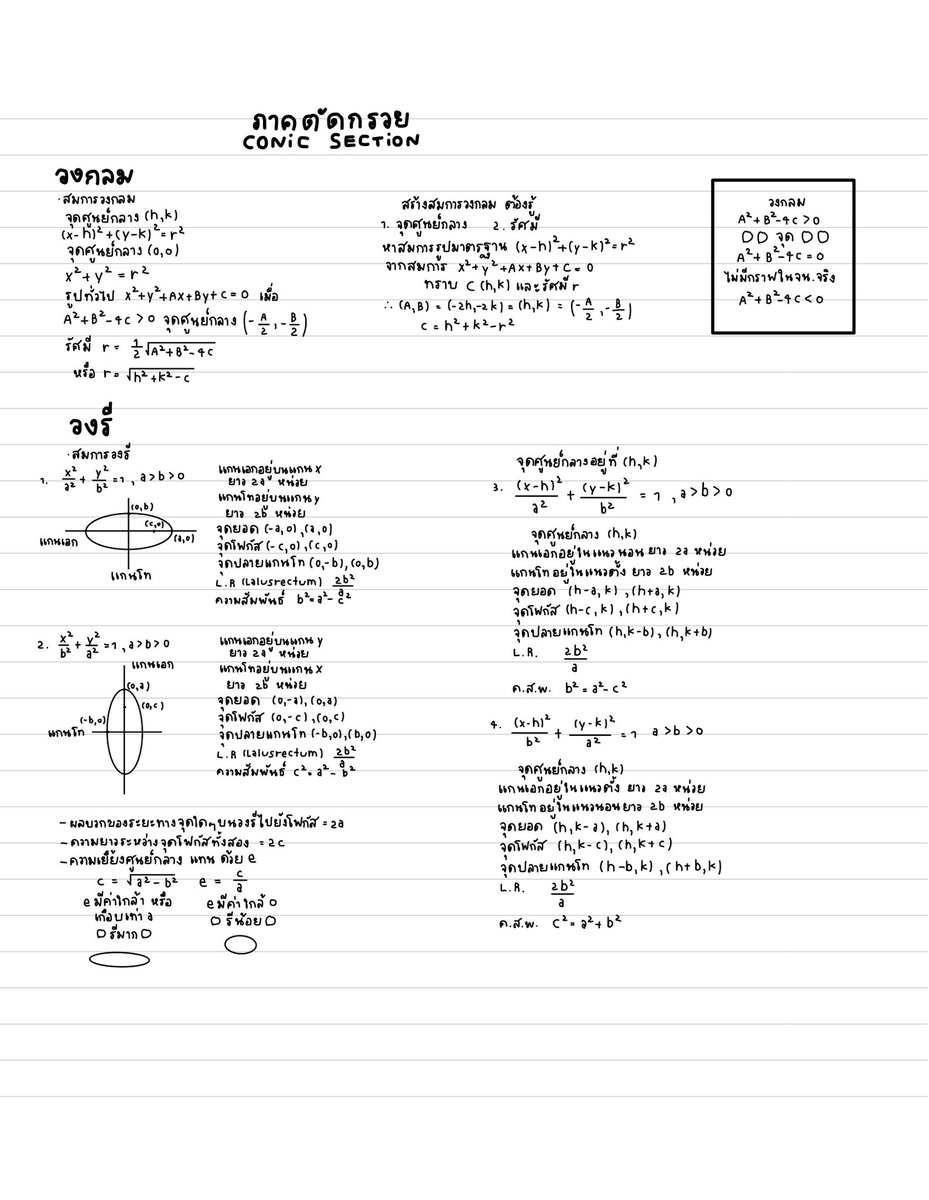 ภาคตัดกรวย
CONIC SECTION
วงกลม
·สมการวงกลม
จุดศูนย์กลาง (h,k)
(x-h)²+(y-k)²=r²
จุดศูนย์กลาง (0,0)
x²+y²=r²
รูปทั่วไป x²+y²+Ax+By+C=0 เมื่อ
A²+B²-4C>0 จุดศูนย์กลาง (-A/2,-B/2)
รัศมี r = 1/2√(A²+B²-4C)
หรือ r=√(h²+k²-c)
สร้างสมการวงกลม ต้องรู้
1. จุดศูนย์กลาง 2. รัศมี
หาสมการรูปมาตรฐาน (x-h)²+(y-k)²=r²
จากสมการ x²+y²+Ax+By+C=0
ทราบ C(h,k) และรัศมี r
∴(A,B)=(-2h,-2k)=(h,k)=(-A/2,-B/2)
C=h²+k²-r²
วงกลม
A²+B²-4C>0
จุด
A²+B²-4C=0
ไม่มีกราฟในจน.จริง
A²+B²-4C<0
วงรี
·สมการวงรี
1. x²/a²+y²/b²=1, a>b>0
(0,b)
(c,0)
(a,0)
แกนเอก
แกนโท
แกนเอกอยู่บนแกน x
ยาว 2a หน่วย
แกนโทอยู่บนแกน y
ยาว 2b หน่วย
จุดยอด (-a,0),(a,0)
จุดโฟกัส (-c,0),(c,0)
จุดปลายแกนโท (0,-b),(0,b)
L.R (Lalusrectum) 2b²/a
ความสัมพันธ์ b²=a²-c²
2. x²/b²+y²/a²=1, a>b>0
แกนเอก
(0,a)
(0,c)
(-b,0)
แกนโท
แกนเอกอยู่บนแกน y
ยาว 2a หน่วย
แกนโทอยู่บนแกน x
ยาว 2b หน่วย
จุดยอด (0,-a),(0,a)
จุดโฟกัส (0,-c),(0,c)
จุดปลายแกนโท (-b,0),(b,0)
L.R (Lalusrectum) 2b²/a
ความสัมพันธ์ c²=a²-b²
-ผลบวกของระยะทางจุดใดๆบนวงรีไปยังโฟกัส=2a
-ความยาวระหว่างจุดโฟกัสทั้งสอง =2c
-ความเยื้องศูนย์กลาง แทน ด้วย e
c=√(a²-b²) e=c/a
e มีค่าใกล้า หรือ
เกือบเท่า a
รีมาก
e มีค่าใกล้ 0
รีน้อย
จุดศูนย์กลางอยู่ที่ (h,k)
3. (x-h)²/a²+(y-k)²/b²=1, a>b>0
จุดศูนย์กลาง (h,k)
แกนเอกอยู่ในแนวนอน ยาว 2a หน่วย
แกนโทอยู่ในแนวตั้ง ยาว 2b หน่วย
จุดยอด (h-a,k),(h+a,k)
จุดโฟกัส (h-c,k),(h+c,k)
จุดปลายแกนโท (h,k-b),(h,k+b)
L.R. 2b²/a
ค.ส.พ. b²=a²-c²
4. (x-h)²/b²+(y-k)²/a²=1 a>b>0
จุดศูนย์กลาง (h,k)
แกนเอกอยู่ในแนวตั้ง ยาว 2a หน่วย
แกนโทอยู่ในแนวนอนยาว 2b หน่วย
จุดยอด (h,k-a),(h,k+a)
จุดโฟกัส (h,k-c),(h,k+c)
จุดปลายแกนโท (h-b,k),(h+b,k)
L.R. 2b²/a
ค.ส.พ. c²=a²+b²